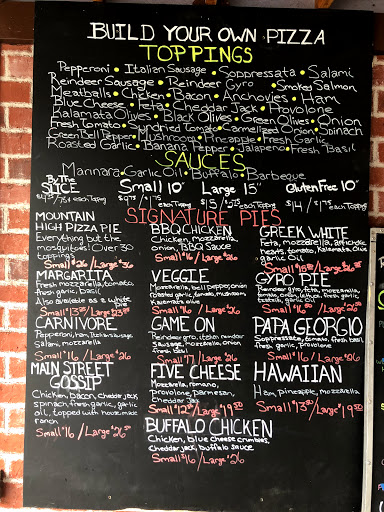 BUILD YOUR OWN PIZZA
TOPPINGS
Pepperoni • Italian Sausage • Soppressata • Salami
Reindeer Sausage • Reindeer Gyro • Smoked Salmon
Meatballs • Chicken • Bacon • Anchovies • Ham
Blue Cheese • Feta • Cheddar Jack • Provolone
Kalamata Olives • Black Olives • Green Olives • Onion
Fresh Tomato • Sundried Tomato • Carmelized Onion • Spinach
Green Bell Pepper • Mushroom • Pineapple • Fresh Garlic
Roasted Garlic • Banana Pepper • Jalapeño • Fresh Basil
SAUCES
Marinara • Garlic Oil • Buffalo • Barbeque
By The SLICE
Small 10" Large 15" Gluten Free 10"
each Topping
SIGNATURE PIES
MOUNTAIN
HIGH PIZZA PIE
Everything but the
mosquitoes! Over 30
toppings
Small $26 / Large $36
MARGARITA
Fresh mozzarella, tomato,
fresh garlic, basil.
Also available as a white
pie
CARNIVORE
Pepperoni, ham, Italian sausage
Salami, mozzarella
Small $16 / Large $26
MAIN STREET
GOSSIP
Chicken, bacon, cheddar jack,
spinach, fresh garlic, garlic
oil, topped with housemade
ranch
Small $16 / Large $26
BBQ CHICKEN
Chicken, mozzarella,
onion, BBQ Sauce
Small $16 / Large $26
VEGGIE
Mozzarella, bell pepper, onion
roasted garlic, tomato, mushroom
Kalamata olive
Small $16 / Large $26
GAME ON
Reindeer gyro, italian reindeer
Sausage, mozzarella, onion,
fresh basil
Small $17 / Large $26
FIVE CHEESE
Mozzarella, romano,
provolone, parmesan,
Cheddar Jack
Small $12 / Large $19.50
BUFFALO CHICKEN
Chicken, blue cheese crumbles,
cheddar jack, buffalo sauce
Small $16 / Large $26
GREEK WHITE
Feta, mozzarella, artichoke
hearts, tomato, Kalamata, Olive,
Garlic Oil
GYRO PIE
Reindeer gyro, feta, mozzarella,
tomato, onion, fresh garlic,
garlic oil
PAPA GIORGIO
Soppressata, tomato, fresh basil,
fresh garlic, provolone
Small $16 / Large $26
HAWAIIAN
Ham, pineapple, mozzarella
Small $13 / Large $19.50